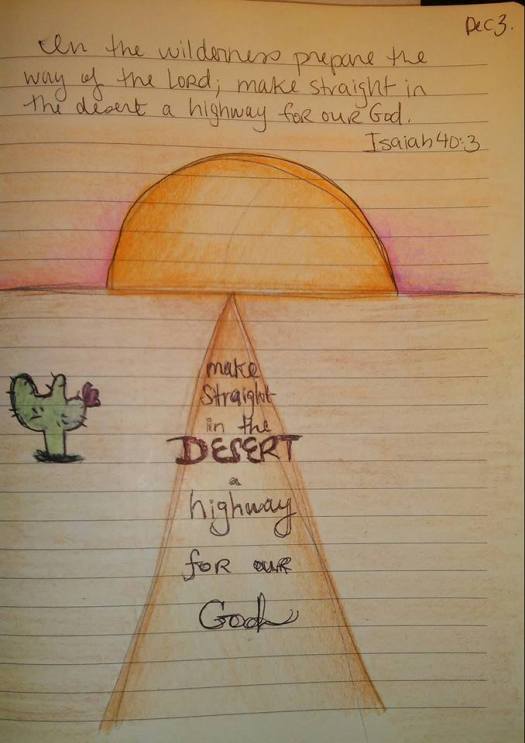 Dec 3.
In the wilderness prepare the
way of the LORD; make straight in
the desert a highway for our God.
Isaiah 40:3
make
Straight
in the
DESERT
a
highway
for our
God